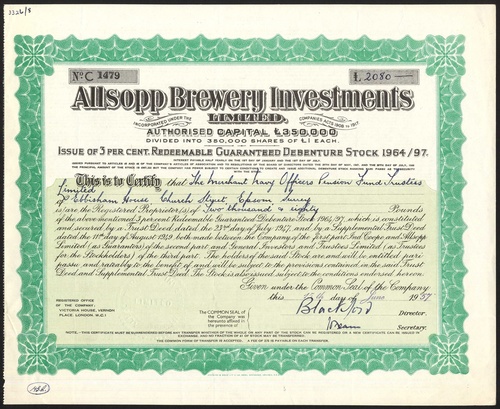 2226/8
No C 1479
£ 2080 —
Allsopp Brewery Investments
LIMITED.
INCORPORATED UNDER THE COMPANIES ACTS 1908 TO 1917.
AUTHORISED CAPITAL £350,000
DIVIDED INTO 350,000 SHARES OF £1 EACH.
ISSUE OF 3 PER CENT. REDEEMABLE GUARANTEED DEBENTURE STOCK 1964/97.
INTEREST PAYABLE HALF YEARLY ON THE 1ST DAY OF JANUARY AND THE 1ST DAY OF JULY.
This is to Certify that The Merchant Navy Officers Pension Fund Trustees
Limited
of Ebbisham House Church Street, Epsom Surrey
is/are the Registered Proprietor(s) of Two thousand & eighty Pounds
of the above mentioned 3 per cent Redeemable Guaranteed Debenture Stock 1964/97, which is constituted
and secured by a Trust Deed dated the 23rd day of July 1947, and by a Supplemental Trust Deed
dated the 11th day of August 1949 both made between the Company of the first part Ind Coope and Allsopp
Limited (as Guarantors) of the second part and General Investors and Trustees Limited (as Trustees
for the Stockholders) of the third part. The holders of the said Stock are and will be entitled pari
passu and rateably to the benefit of and will be subject to the provisions contained in the said Trust
Deed and Supplemental Trust Deed. The Stock is also issued subject to the conditions endorsed hereon.
Given under the Common Seal of the Company
this day of June 1957
REGISTERED OFFICE
OF THE COMPANY:
VICTORIA HOUSE, VERNON
PLACE, LONDON. W.C.1
The COMMON SEAL of
the Company was
hereunto affixed in
the presence of
Director.
Secretary.
NOTE.—THIS CERTIFICATE MUST BE SURRENDERED BEFORE ANY TRANSFER WHETHER OF THE WHOLE OR ANY PART OF THE STOCK CAN BE REGISTERED OR A NEW CERTIFICATE CAN BE ISSUED IN
EXCHANGE, AND NO FRACTION OF £1 OF STOCK MAY BE TRANSFERRED.
THE COMMON FORM OF TRANSFER IS ACCEPTED. A FEE OF 2/6 IS PAYABLE ON EACH TRANSFER.